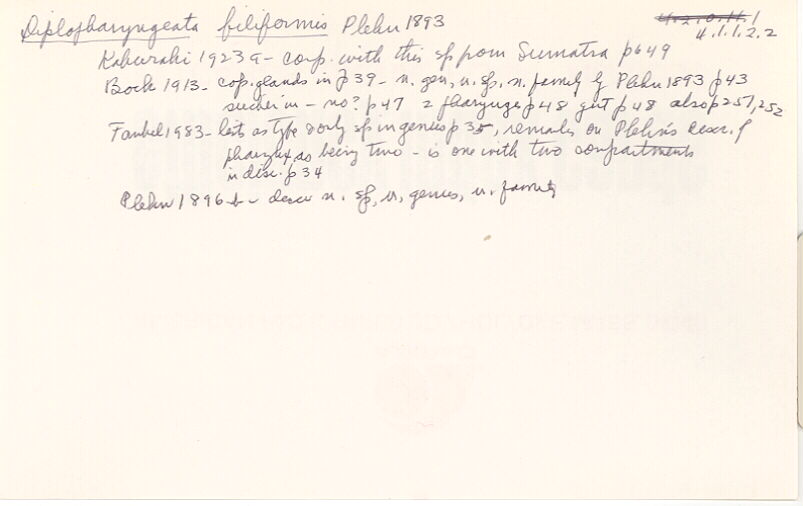 Diplopharyngeata filiformis Plehn 1893
4.2.0.11.1
4.1.1.2.2
Kaburaki 1923a - comp. with this sp from Sumatra p649
Bock 1913 - cop. glands in p39 - n. gen, n. sp, n. family of Plehn 1893 p43
sucker in - no? p47 2 pharynges p48 gut p48 also p251, 252
Faubel 1983 - lists as type & only sp in genus p35, remarks on Plehn's descr. of
pharynx as being two - is one with two compartments
in disc. p34
Plehn 1896b - descr n. sp, n. genus, n. family